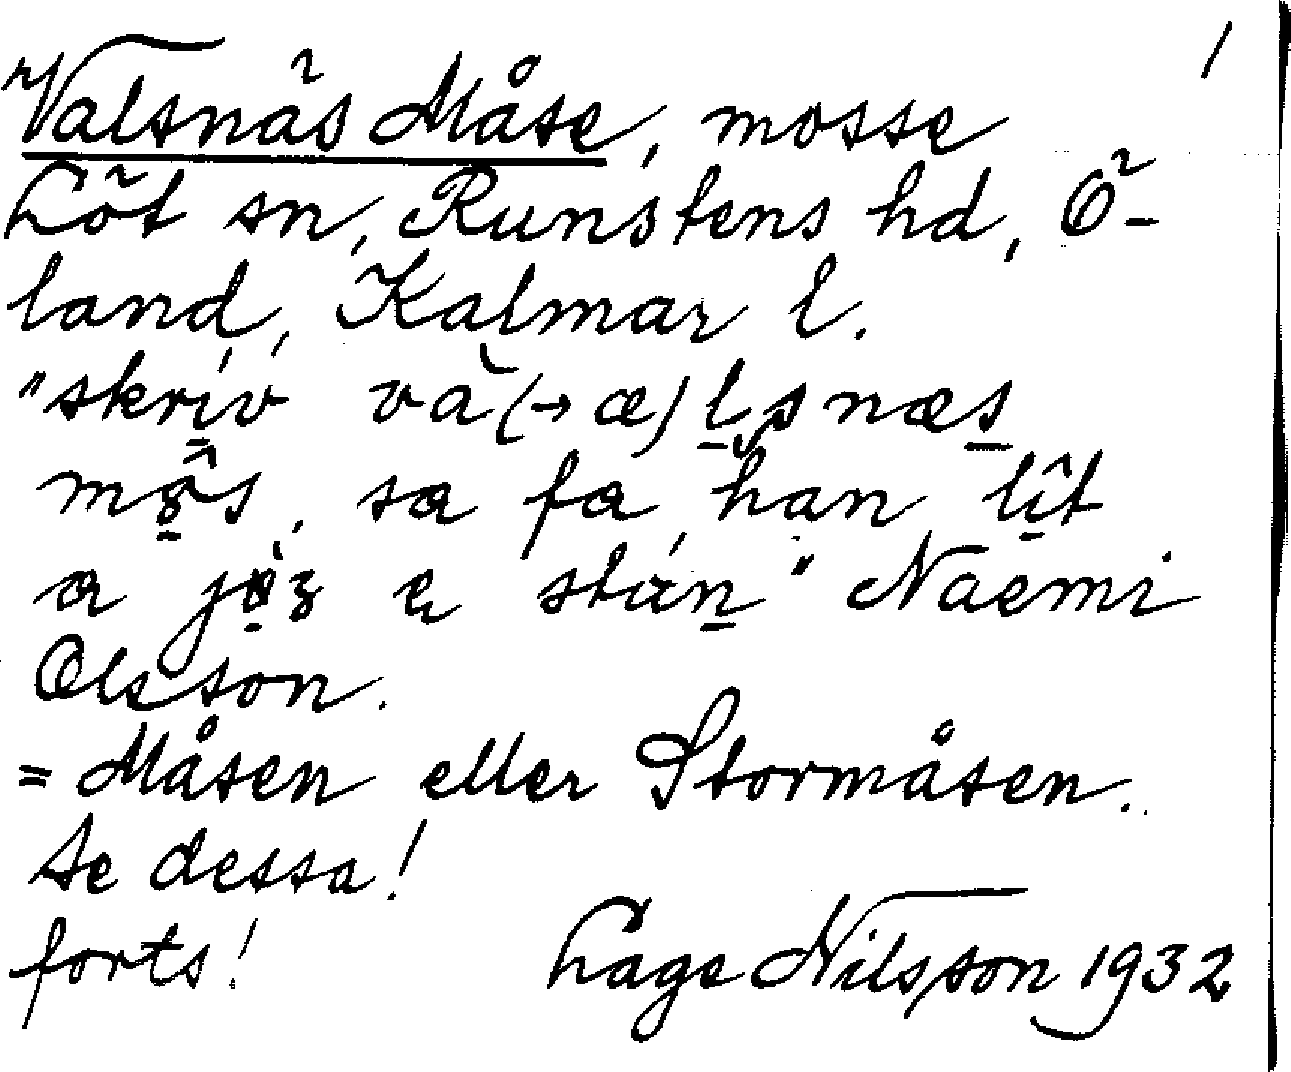 1
Valsnäs Måse, mosse
Löt sn, Runstens hd, Ö-
land, Kalmar l.
"skrìv và(→æ)l̠snæs̠
sa fa, han lît
a stán" Naemi
Olsson.
= Måsen eller Stormåsen.
Se dessa!
forts! Lage Nilsson 1932